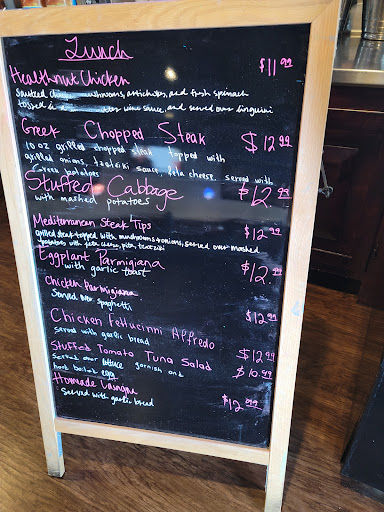 Lunch
$11.99
Healthnut Chicken
Sauteed mushrooms, artichokes, and fresh spinach
tossed in a wine sauce, and served over linguini
Greek Chopped Steak $12.99
10 oz grilled chopped steak topped with
grilled onions, tzatziki sauce, feta cheese, served with
Greek potatoes
Stuffed Cabbage $12.99
with mashed potatoes
Mediterranean Steak Tips $12.99
grilled steak topped with mushrooms & onions, served over mashed
potatoes with feta cheese, pita, tzatziki
Eggplant Parmigiana $12.99
with garlic toast
Chicken Parmigiana
Served over spaghetti $12.99
Chicken Fettuccinni Alfredo
served with garlic bread $12.99
Stuffed Tomato Tuna Salad $10.99
Served over lettuce garnish and
hard boiled egg
Homade Lasagna $12.99
Served with garlic bread